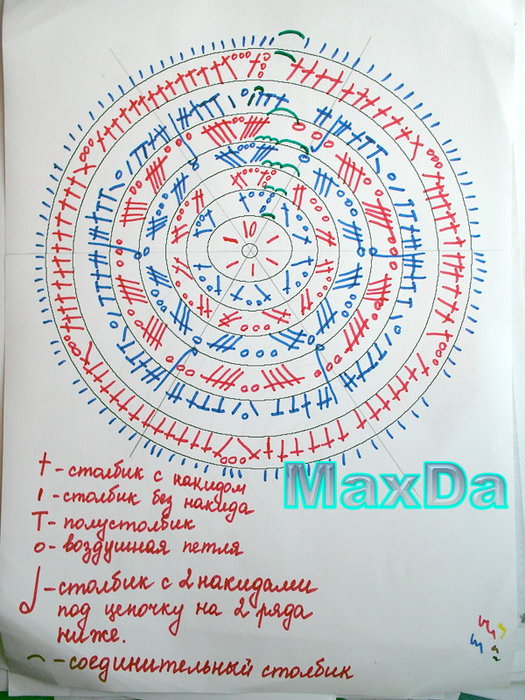 MaxDa
† - столбик с накидом
ı - столбик без накида
Т - полустолбик
о - воздушная петля
- столбик с 2 накидами
под цепочку на 2 ряда
ниже.
⌒ - соединительный столбик